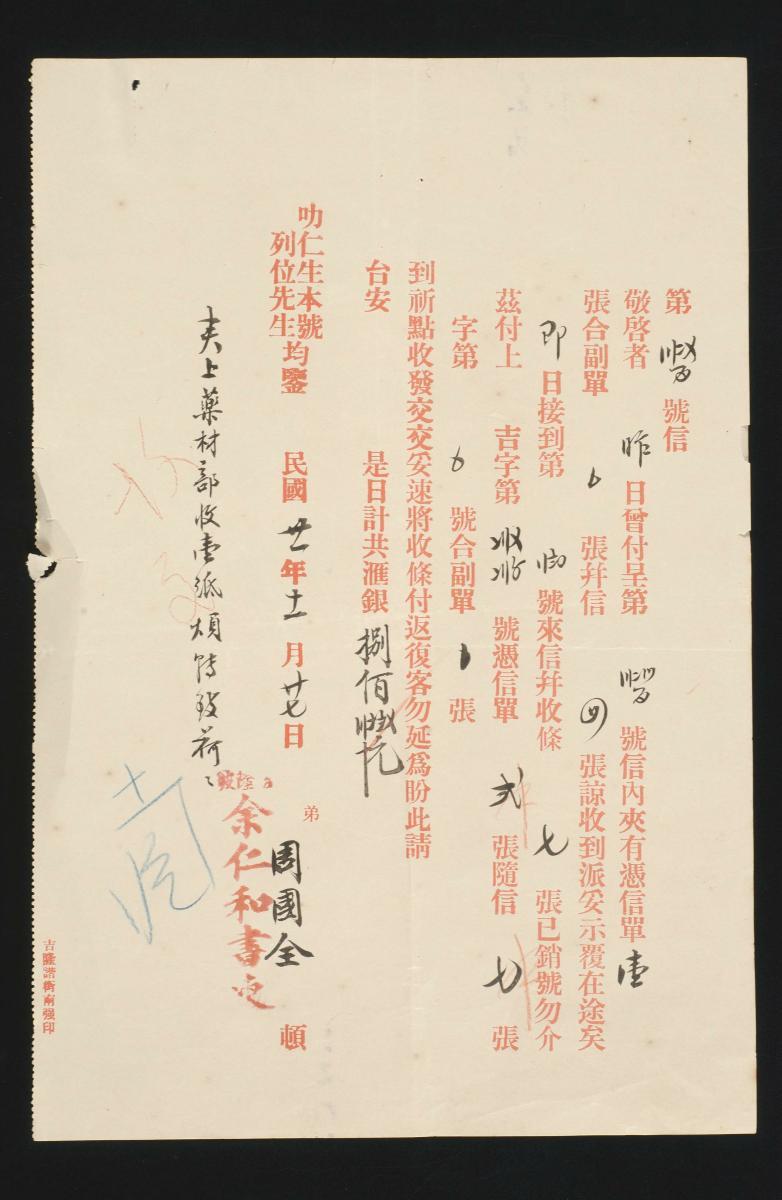 第 號信
敬啓者 昨 日曾付呈第 號信內夾有憑信單 壹
張合副單 張幷信 四 張諒收到派妥示覆在途矣
即 日接到第 號來信幷收條 七 張已銷號勿介
茲付上 吉字第 號憑信單 弍 張隨信 七 張
字第 號合副單 張
到祈點收發交交妥速將收條付返復客勿延爲盼此請
台安 是日計共滙銀 捌佰 元
叻仁生本號
列位先生均鑒 民國 廿一 年 十一 月 廿七 日 弟 周國全 頓
夾上藥材部收壹紙煩轉致荷
余仁和書柬
吉隆諧街南强印